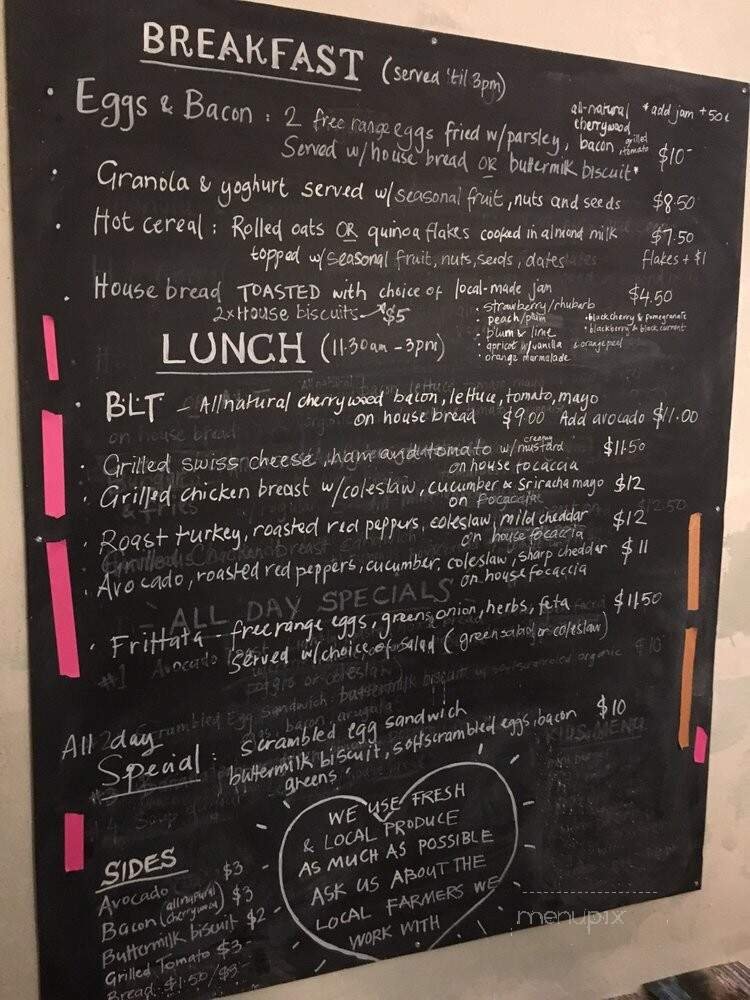 BREAKFAST (served 'til 3pm)
• Eggs & Bacon : 2 free range eggs fried w/parsley, all-natural cherrywood bacon, grilled tomato $10-
*add jam +50¢
Served w/house bread OR buttermilk biscuit*
• Granola & yoghurt served w/seasonal fruit, nuts and seeds $8.50
• Hot cereal : Rolled oats OR quinoa flakes cooked in almond milk $7.50
topped w/seasonal fruit, nuts, seeds, dates flakes + $1
• House bread TOASTED with choice of local-made jam $4.50
2x House biscuits $5
• strawberry/rhubarb
• peach/plum • black cherry & pomegranate
• plum & lime • blackberry & black currant
• apricot w/vanilla & orange peel
• orange marmalade
LUNCH (11.30am - 3pm)
• BLT - All natural cherrywood bacon, lettuce, tomato, mayo
on house bread $9.00 Add avocado $11.00
• Grilled swiss cheese, ham and tomato w/creamy mustard $11.50
on house focaccia
• Grilled chicken breast w/coleslaw, cucumber & sriracha mayo $12
on focaccia
• Roast turkey, roasted red peppers, coleslaw, mild cheddar $12
on house focaccia
• Avocado, roasted red peppers, cucumber, coleslaw, sharp cheddar $11
on house focaccia
ALL DAY SPECIALS
• Frittata - free range eggs, greens, onion, herbs, feta $11.50
Served w/choice of salad (green salad or coleslaw)
All day
Special : scrambled egg sandwich $10
buttermilk biscuit, soft scrambled eggs, bacon
greens.
KIDS MENU
WE USE FRESH
& LOCAL PRODUCE
AS MUCH AS POSSIBLE
ASK US ABOUT THE
LOCAL FARMERS WE
WORK WITH
SIDES
Avocado $3-
Bacon (all natural cherrywood) $3
Buttermilk biscuit $2
Grilled Tomato $3-
Bread $1.50/$3-
menupix